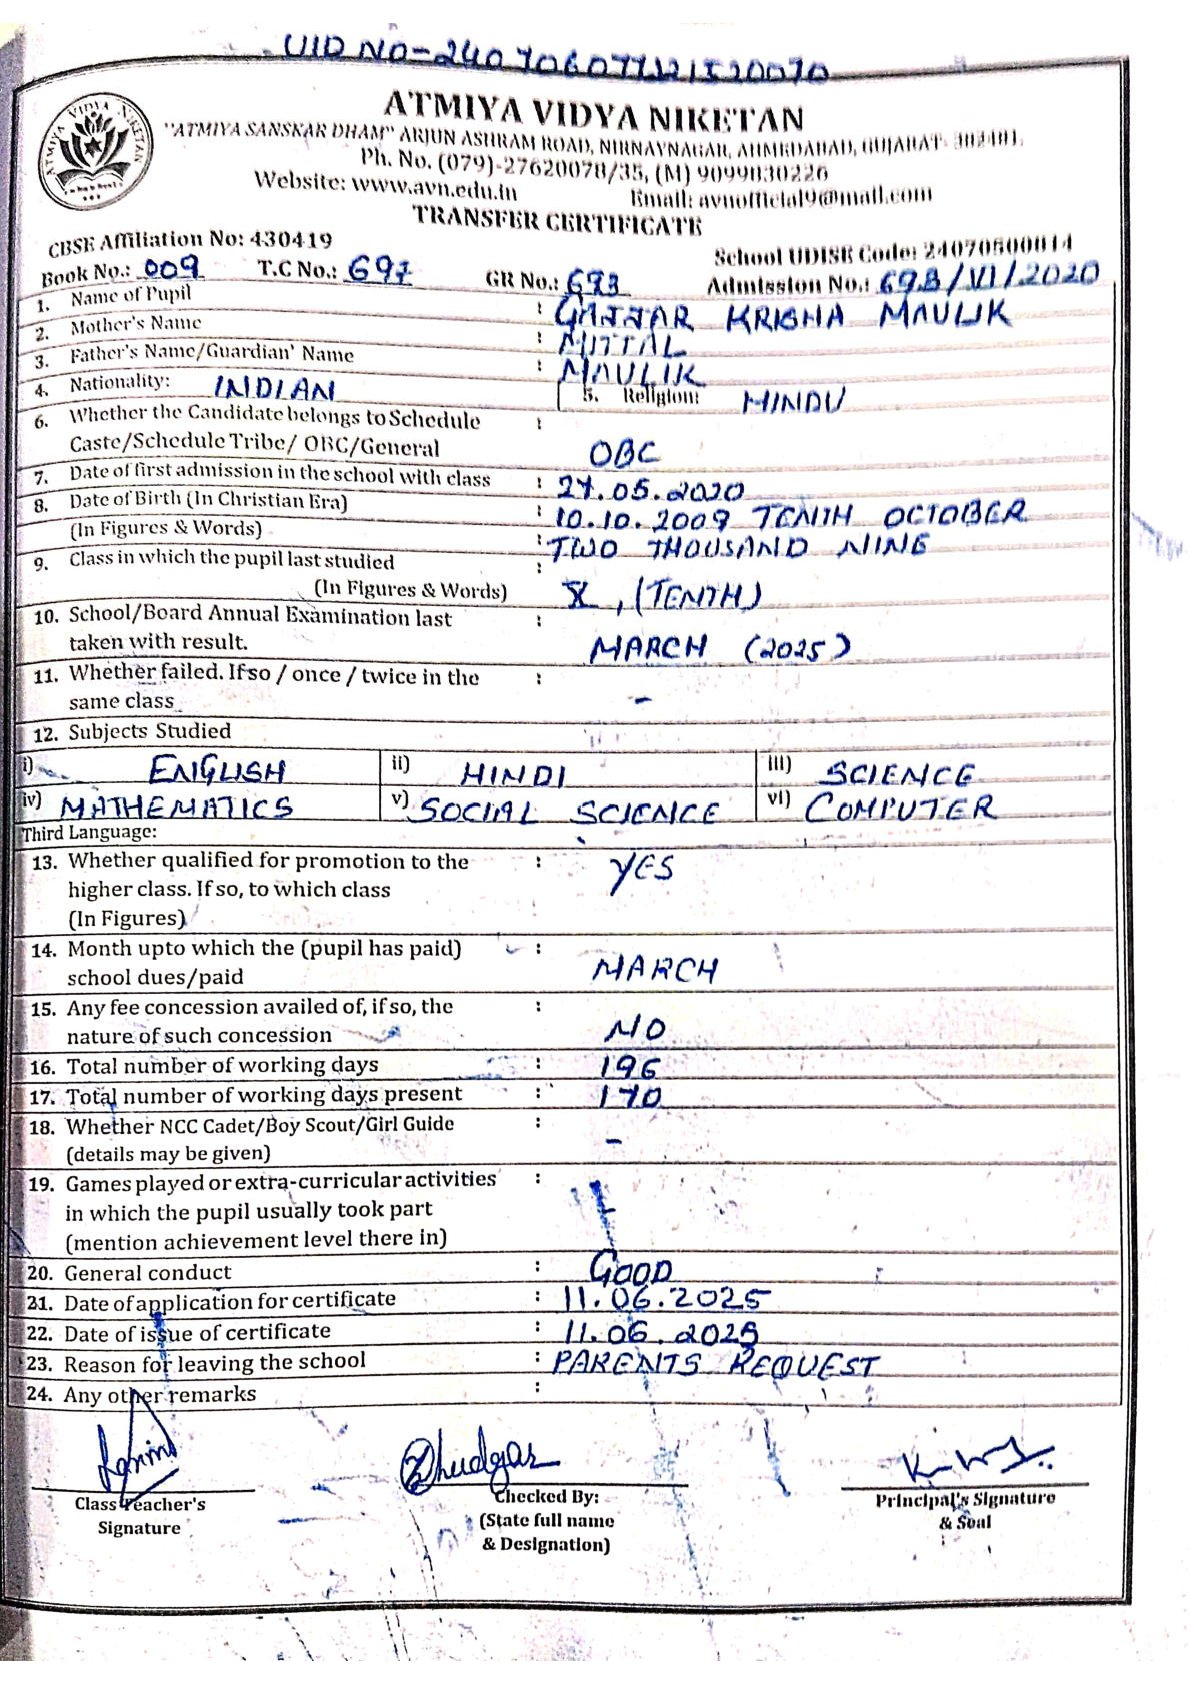 UID NO-240706077121520070
ATMIYA VIDYA NIKETAN
"ATMIYA SANSKAR DHAM" ARJUN ASHRAM ROAD, NIRNAYNAGAR, AHMEDABAD, GUJARAT- 382481.
Ph. No. (079)-27620078/35, (M) 9099830226
Website: www.avn.edu.in Email: avnofficial9@mail.com
TRANSFER CERTIFICATE
CBSE Affiliation No: 430419 School UDISE Code: 24070500814
Book No.: 009 T.C No.: 697 GR No.: 693 Admission No.: 693/VI/2020
1. Name of Pupil : GAJJAR KRISHA MAULIK
2. Mother's Name : MITTAL
3. Father's Name/Guardian' Name : MAULIK
4. Nationality: INDIAN 5. Religion: HINDU
6. Whether the Candidate belongs to Schedule :
Caste/Schedule Tribe/ OBC/General OBC
7. Date of first admission in the school with class : 27.05.2020
8. Date of Birth (In Christian Era) : 10.10.2009 TENTH OCTOBER
(In Figures & Words) : TWO THOUSAND NINE
9. Class in which the pupil last studied :
(In Figures & Words) X, (TENTH)
10. School/Board Annual Examination last :
taken with result. MARCH (2025)
11. Whether failed. If so / once / twice in the :
same class -
12. Subjects Studied
i) ENGLISH ii) HINDI iii) SCIENCE
iv) MATHEMATICS v) SOCIAL SCIENCE vi) COMPUTER
Third Language:
13. Whether qualified for promotion to the : YES
higher class. If so, to which class
(In Figures)
14. Month upto which the (pupil has paid) :
school dues/paid MARCH
15. Any fee concession availed of, if so, the :
nature of such concession NO
16. Total number of working days : 196
17. Total number of working days present : 170
18. Whether NCC Cadet/Boy Scout/Girl Guide :
(details may be given) -
19. Games played or extra-curricular activities :
in which the pupil usually took part -
(mention achievement level there in)
20. General conduct : GOOD
21. Date of application for certificate : 11.06.2025
22. Date of issue of certificate : 11.06.2025
23. Reason for leaving the school : PARENTS REQUEST
24. Any other remarks :
Class Teacher's Checked By: Principal's Signature
Signature (State full name & Seal
& Designation)